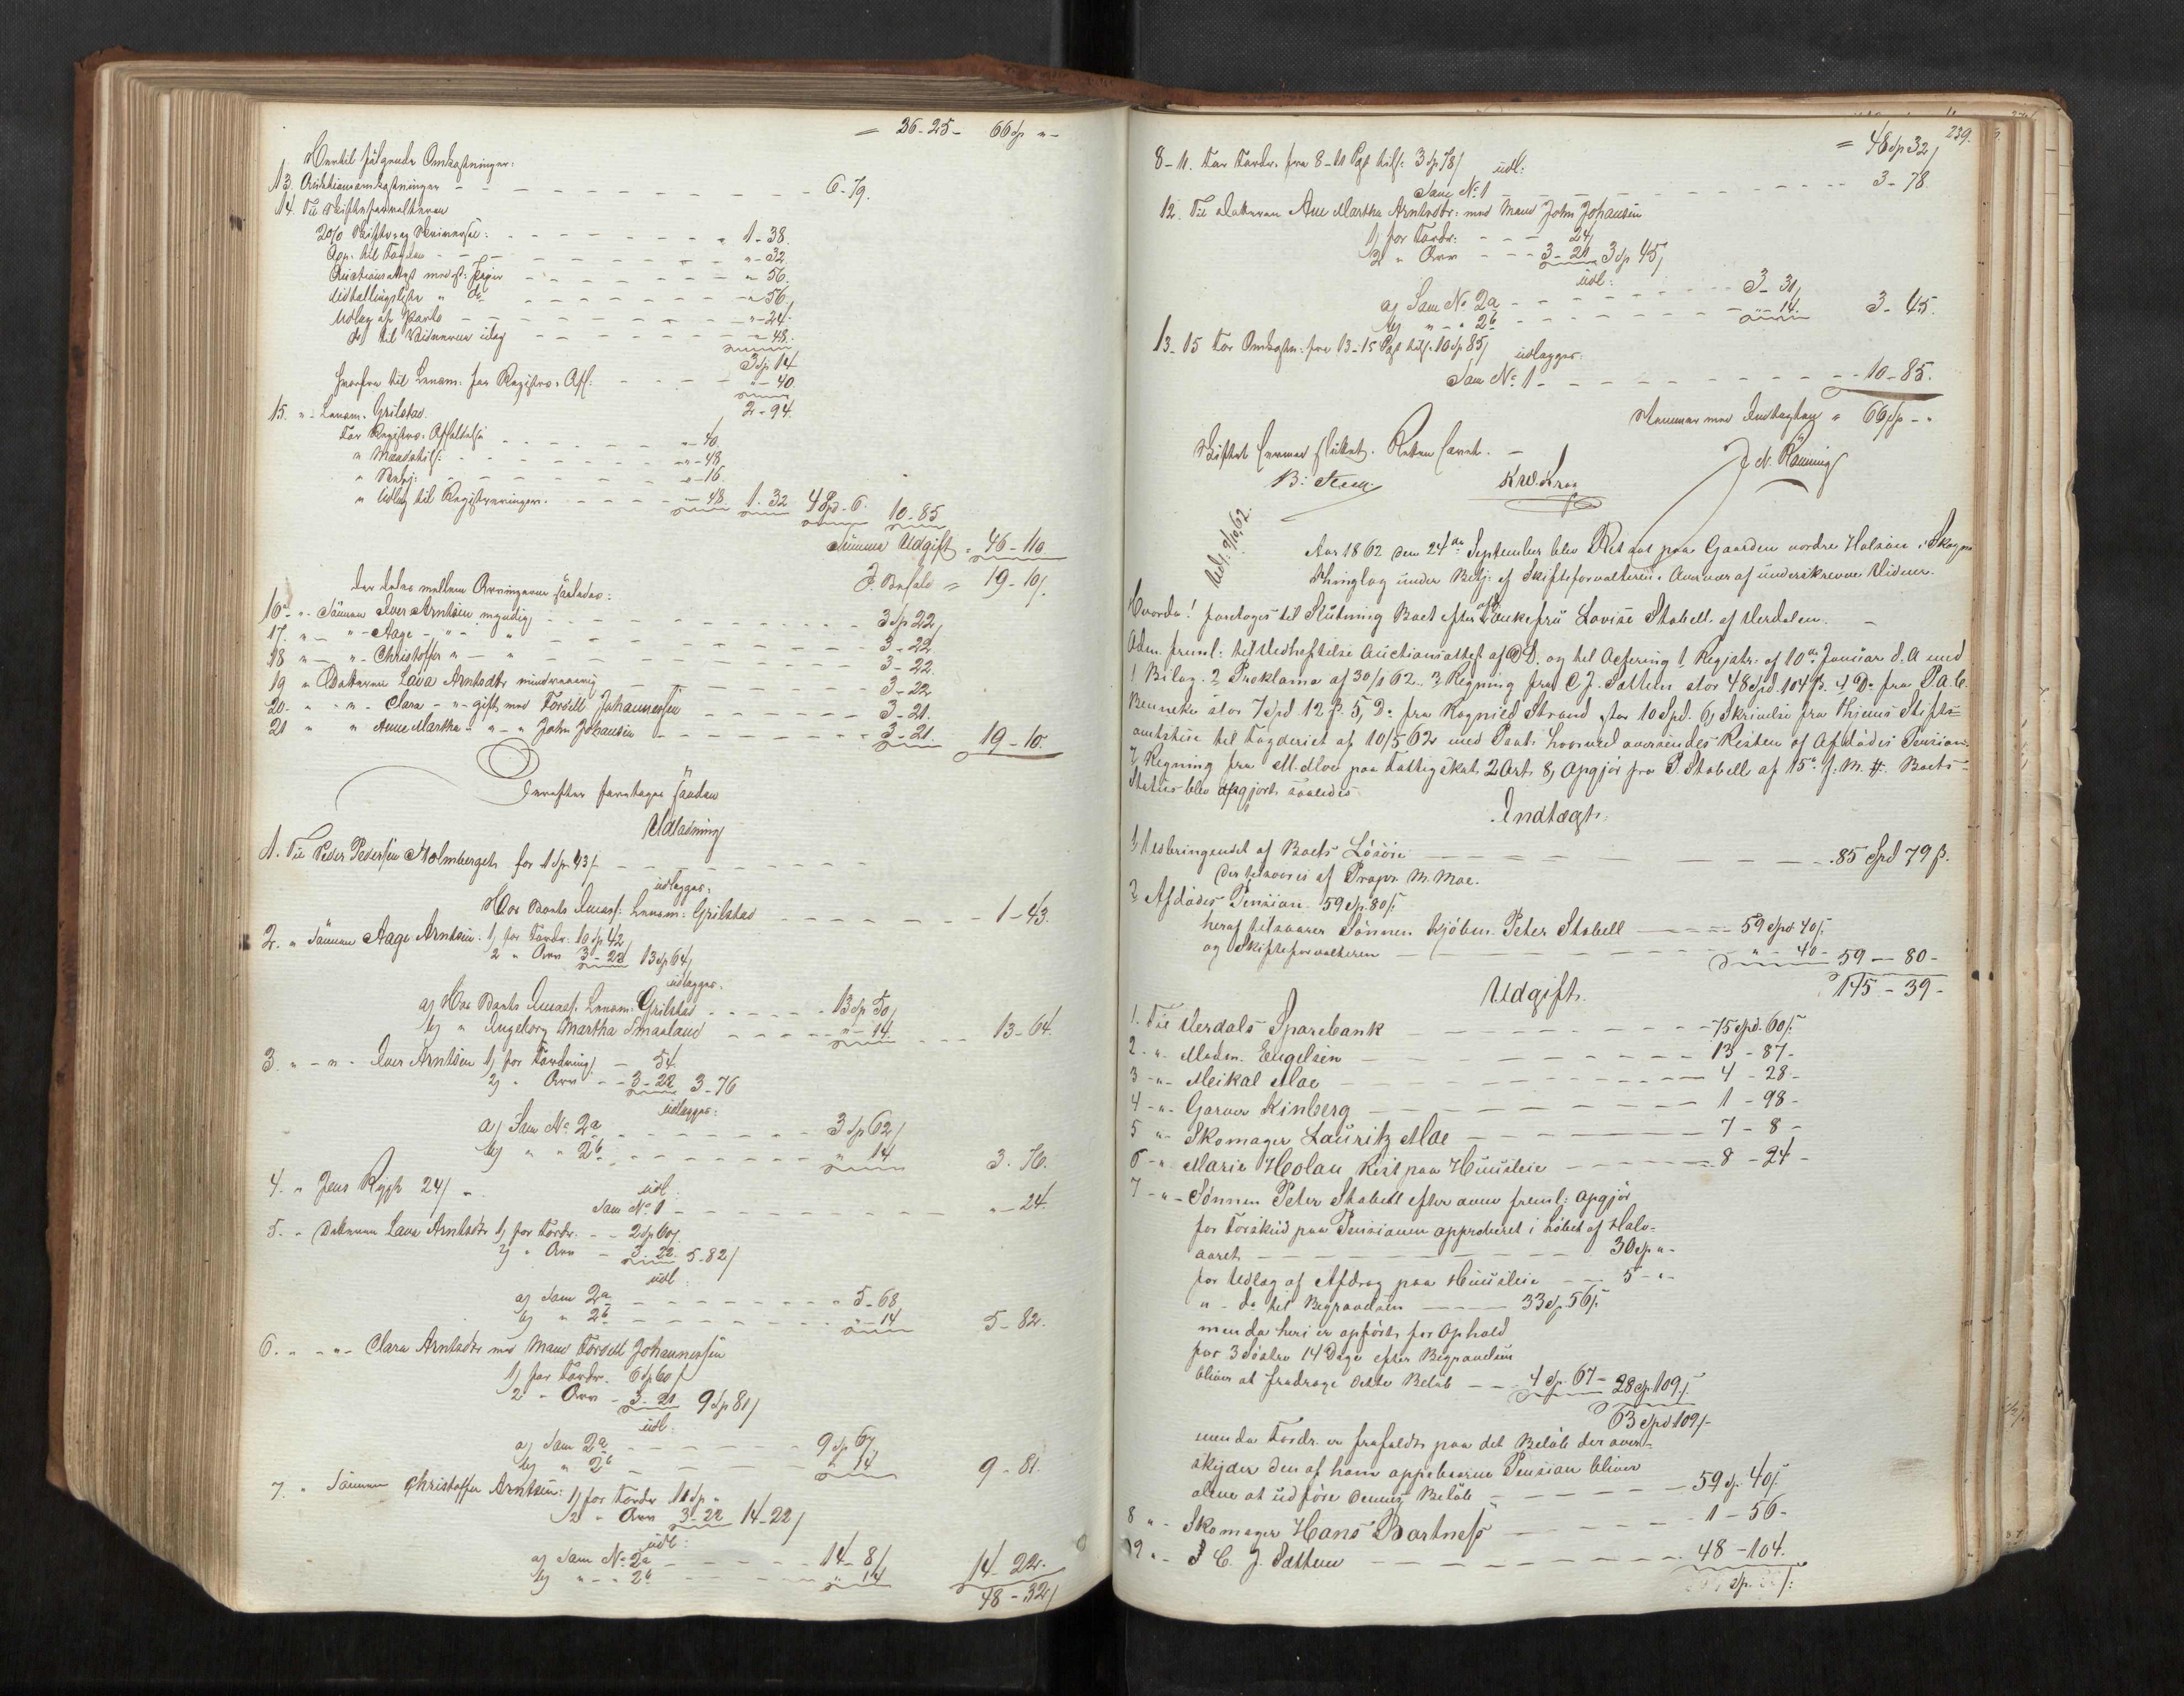 = 36-25- 66 Sp "-
Hertil følgende Omkostninger:
13. Auktionsomkostninger - - - 6-79.
14. Til Skifteforvalteren
2% Skifte og Skriversal: - - - " 1-38.
Op. til Fogden - - - "-32.
Auctionsattest med st: Papir - - - "-56.
Udlodlingslista " do - - - "-56.
Udlæg af Porto - - - "-24.
do til Vidnerne idag - - - "-48.
3 Sp 14
herfra til Lensm: for Registr: Aff: - - - "-40.
2-94.
15. "- Lensm. Grilstad.
For Registr: Afholdelse - - - "-40.
" - - - "-48
" - - - "-16.
" Udlæg til Registreringen. - - - "-48. 1-32 4 Spd-6. 10-85
Summa Udgift = 46-110
I Behold = 19-10/.
der deles mellem Arvingerne saaledes:
16. "- Sønnen Iver Arntsen myndig - - - 3 Sp 22/
17. "- "- Aage - "- " - - - 3-22.
18 "- "- Christoffer "- " - - - 3-22.
19 " Datteren Lava Arntsdtr mindreaarig - - - 3-22
20- " "- Clara - "- gift med Tordell Johannessen - - - 3-21.
21 " " Anne Martha - "- " John Johansen - - - 3-21. 19-10.
Derefter foretages saadan
Udlodning
1. Til Peder Pedersen Holmberget for 1 Sp. 43/ - - -
udlægges:
Hos Boets Incass: Lensm: Grilstad - - - 1-43.
2. " Sønnen Aage Arntsen: 1, for Fordr: 10 Sp 42/
2 " Arv 3-22 13 Sp 64/
udlægges:
a) Hos Boets Incass. Lensm: Grilstad - - - 13 Sp 50/
b) " Ingeborg Martha Smaaland - - - "-14. 13-64.
3. "- "- Iver Arntsen 1, for Fordring - 54.
2) " Arv - - 3-22 3-76
udlægges:
a) Sam No 2a - - - 3 Sp 62/
b) " " 2b - - - " 14 3-76.
4. " Jens Rygh 24/ "
udl:
Sam No 1 - - - "-24.
5. " Datteren Lava Arntsdtr 1, for Fordr: - - 2 Sp 60/.
2) " Arv - 3-22. 5-82/
udl:
a) Sam 2a - - - 5-68
b) " 2b - - - "-14 5-82.
6. "- "- Clara Arntsdtr med Mand Tordell Johannessen
1, for Fordr. 6 Sp 60/
2 " Arv - 3-21 9 Sp 81/
udl:
a) Sam 2a - - - 9 Sp 67/
b) " 2b - - - " 14 9-81.
7. " Sønnen Christoffer Arntsen: 1, for Fordr 11 Sp "
2 " Arv 3-22 14-22/
udl:
a) Sam No 2a - - - 14-8/
b) "- " 2b - - - "-14 14-22.
48-32/
239.
= 48 Sp 32/
8-11. For Fordr. fra 8-11 Pst tils: 3 Sp 78/ udl:
Sam No 1 - - - 3-78
12. Til Datteren Ane Martha Arntsdtr: med Mand John Johansen
1, for Fordr: - - - 24/
2 " Arv - - - 3-21 3 Sp 45/
udl:
a) Sam No 2a - - - 3-31/
b) "- " 2b - - - "-14. 3-45.
13-15 For Omkostn: fra 13-15 Pst tils: 10 Sp 85/ udlægges:
Sam No 1 - - - 10-85.
Stemmer med Indtægten = 66 Sp - "
Skiftet saaledes sluttet. Retten hævet. -
Aar 1862 den 24de September blev Ret sat paa Gaarden nordre Halsan i Skogns
Thinglag under Betj: af Skifteforvalteren i Overvær af underskrevne Vidner.
Hvorda! foretoges til Slutning Boet efter afd: Enkefru Lovise Stabell af Verdalen. -
Adm. freml: til Vedheftelse Auctionsattest af D.D. og til Acfering 1, Registr: af 10de Januar d. A med
1 Bilag. 2 Proklama af 30/1 62. 3, Regning fra C J. Sattem stor 48 Spd. 104 ß. 4, Do fra P. A. C.
Benneke stor 7 Spd 12 ß. 5, Do fra Ragnild Strand stor 10 Spd. 6, Skrivelse fra Thjems Stifts=
amtstue til Fogderiet af 10/5 62 med hvorved oversendes Resten af Afdødes Pension.
7, Regning fra M. Moe paa Fattigskat 2 Ort. 8, Opgjør fra P. Stabell af 15de f. M. #. Boets=
Status blev opgjort saaledes.
Indtægt:
1, Udbringendet af Boets Løsøre - - - 85 Spd 79 ß.
Der tilsvares af Propr. M. Moe.
2, Afdødes Pension 59 Sp. 80 ß.
heraf tilsvarer Sønnen Kjøbm. Peter Stabell - - - 59 Spd 40 ß.
og Skifteforvalteren - - - "-40- 59-80-
145-39-
Udgift.
1. Til Verdals Sparebank - - - 75 Spd. 60 ß.
2 "- Madm. Engelsen - - - 13-87-
3 "- Meikal Moe - - - 4-28-
4 "- Garver Kinberg - - - 1-98-
5 "- Skomager Lauritz Moe - - - 7-8-
6 "- Marie Holan Rest paa Huusleie - - - 8-24-
7 "- Sønnen Peter Stabell efter anm freml: Opgjør
for Forskud paa Pensionen approberet i Løbet af Halv-
aaret - - - 30 Sp "-
for Udlæg af Afdrag paa Huusleie - - - 5-"-
"- do til Begravelsen - - - 33 Sp. 56 ß.
men da heri er opført for Ophold
for 3 Søstre 14 Dage efter Begravelsen
bliver at fradrage dette Beløb - - - 4 Sp. 67- 28 Sp. 109 ß.
63 Spd 109/-
men da Fordr. er frafaldt paa det Beløb der over-
skyder den af ham oppebaarne Pension bliver
alene at udføre denne Beløb - - - 59 Sp. 40 ß.
8 "- Skomager Hans Bartness - - - 1-56-
9 "- C. J. Sattem - - - 48-104.